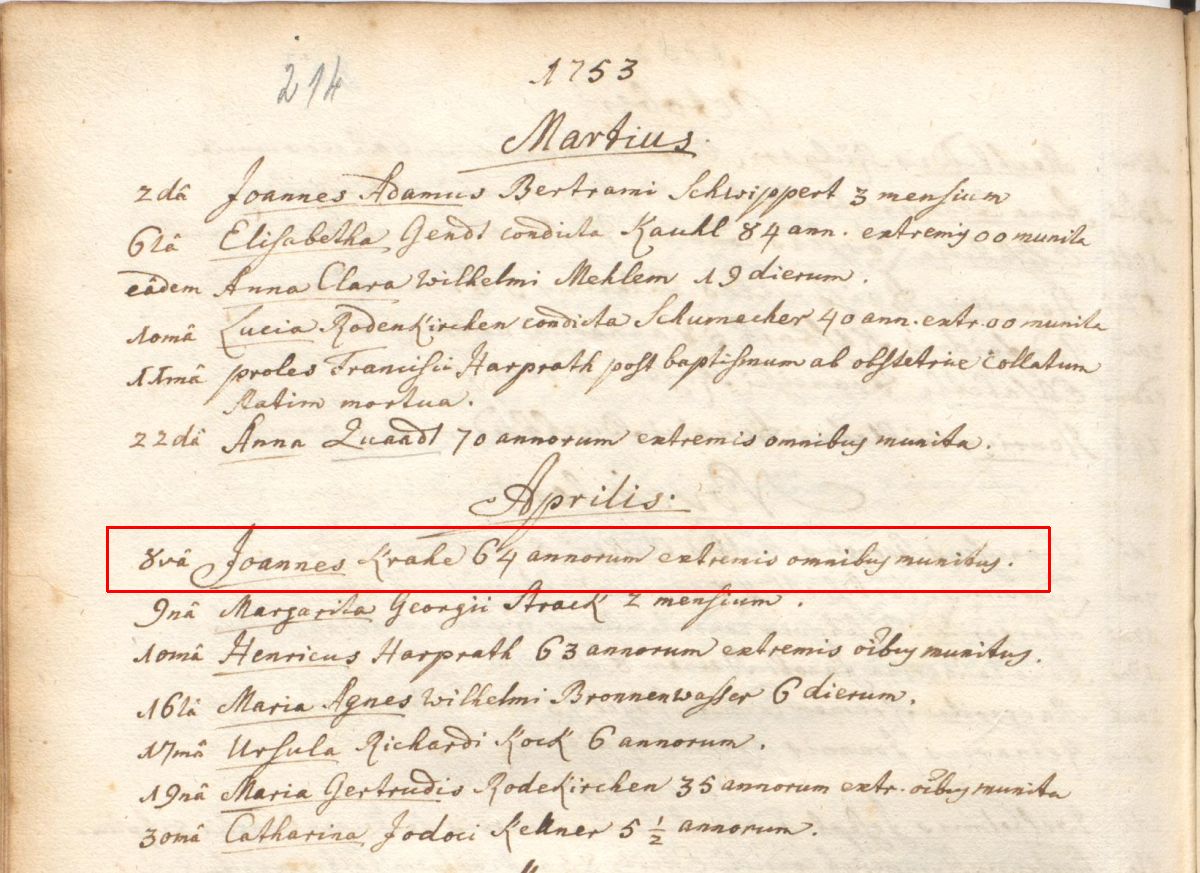 214
1753
Martius.
2dâ Joannes Adamus Bertrami Schwippert 3 mensium
6tâ Elisabetha Gendt condicta Kauhl 84 ann. extremis oo munita
eâdem Anna Clara Wilhelmi Mehlem 19 dierum.
10mâ Lucia Rodenkirchen condicta Schumacher 40 ann. extr. oo munita
11mâ proles Francisii Harprath post baptismum ab obstetrice collatum
statim mortua.
22dâ Anna Quaadt 70 annorum extremis omnibus munita.
Aprilis.
8vâ Joannes Krahe 64 annorum extremis omnibus munitus.
9nâ Margarita Georgii Strack 2 mensium.
10mâ Henricus Harprath 63 annorum extremis oibus munitus.
16tâ Maria Agnes Wilhelmi Bronnenwasser 6 dierum.
17mâ Ursula Richardi Kock 6 annorum.
19nâ Maria Gertrudis Rodekirchen 35 annorum extr. oibus munita
30mâ Catharina Jodoci Kellner 5 1/2 annorum.